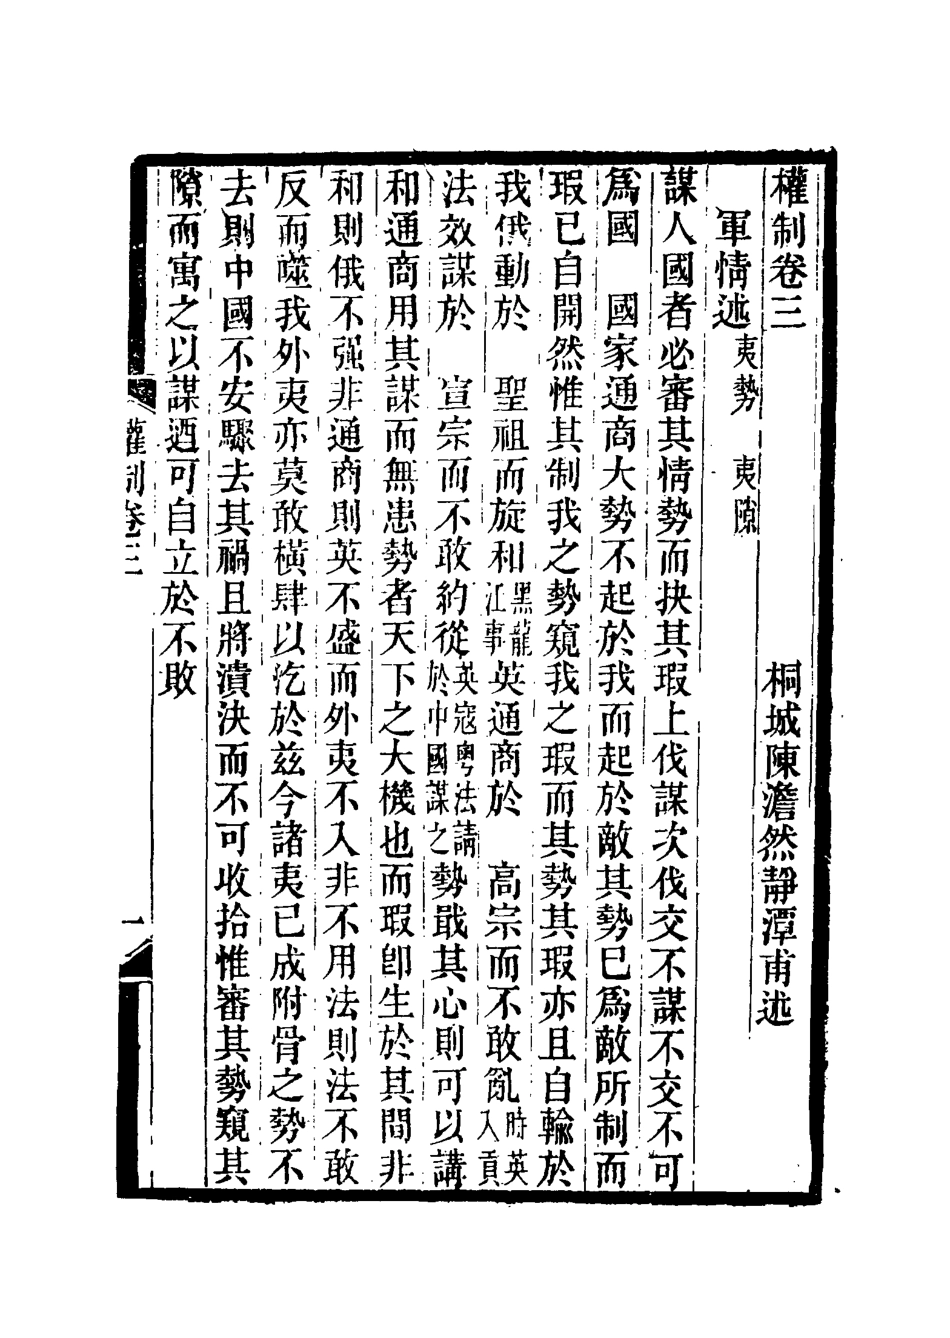 權制卷三
桐城陳澹然靜潭甫述
軍情述 夷勢 夷隙
謀人國者必審其情勢而抉其瑕上伐謀次伐交不謀不交不可
爲國 國家通商大勢不起於我而起於敵其勢已爲敵所制而
瑕已自開然惟其制我之勢窺我之瑕而其勢其瑕亦且自輸於
我俄動於 聖祖而旋和黑龍江事英通商於 高宗而不敢亂時英入貢
法效謀於 宣宗而不敢約從英寇粵法請於中國謀之勢戢其心則可以講
和通商用其謀而無患勢者天下之大機也而瑕卽生於其間非
和則俄不强非通商則英不盛而外夷不入非不用法則法不敢
反而噬我外夷亦莫敢橫肆以汔於兹今諸夷已成附骨之勢不
去則中國不安驟去其禍且將潰決而不可收拾惟審其勢窺其
隙而寓之以謀迺可自立於不敗
權制卷三
一